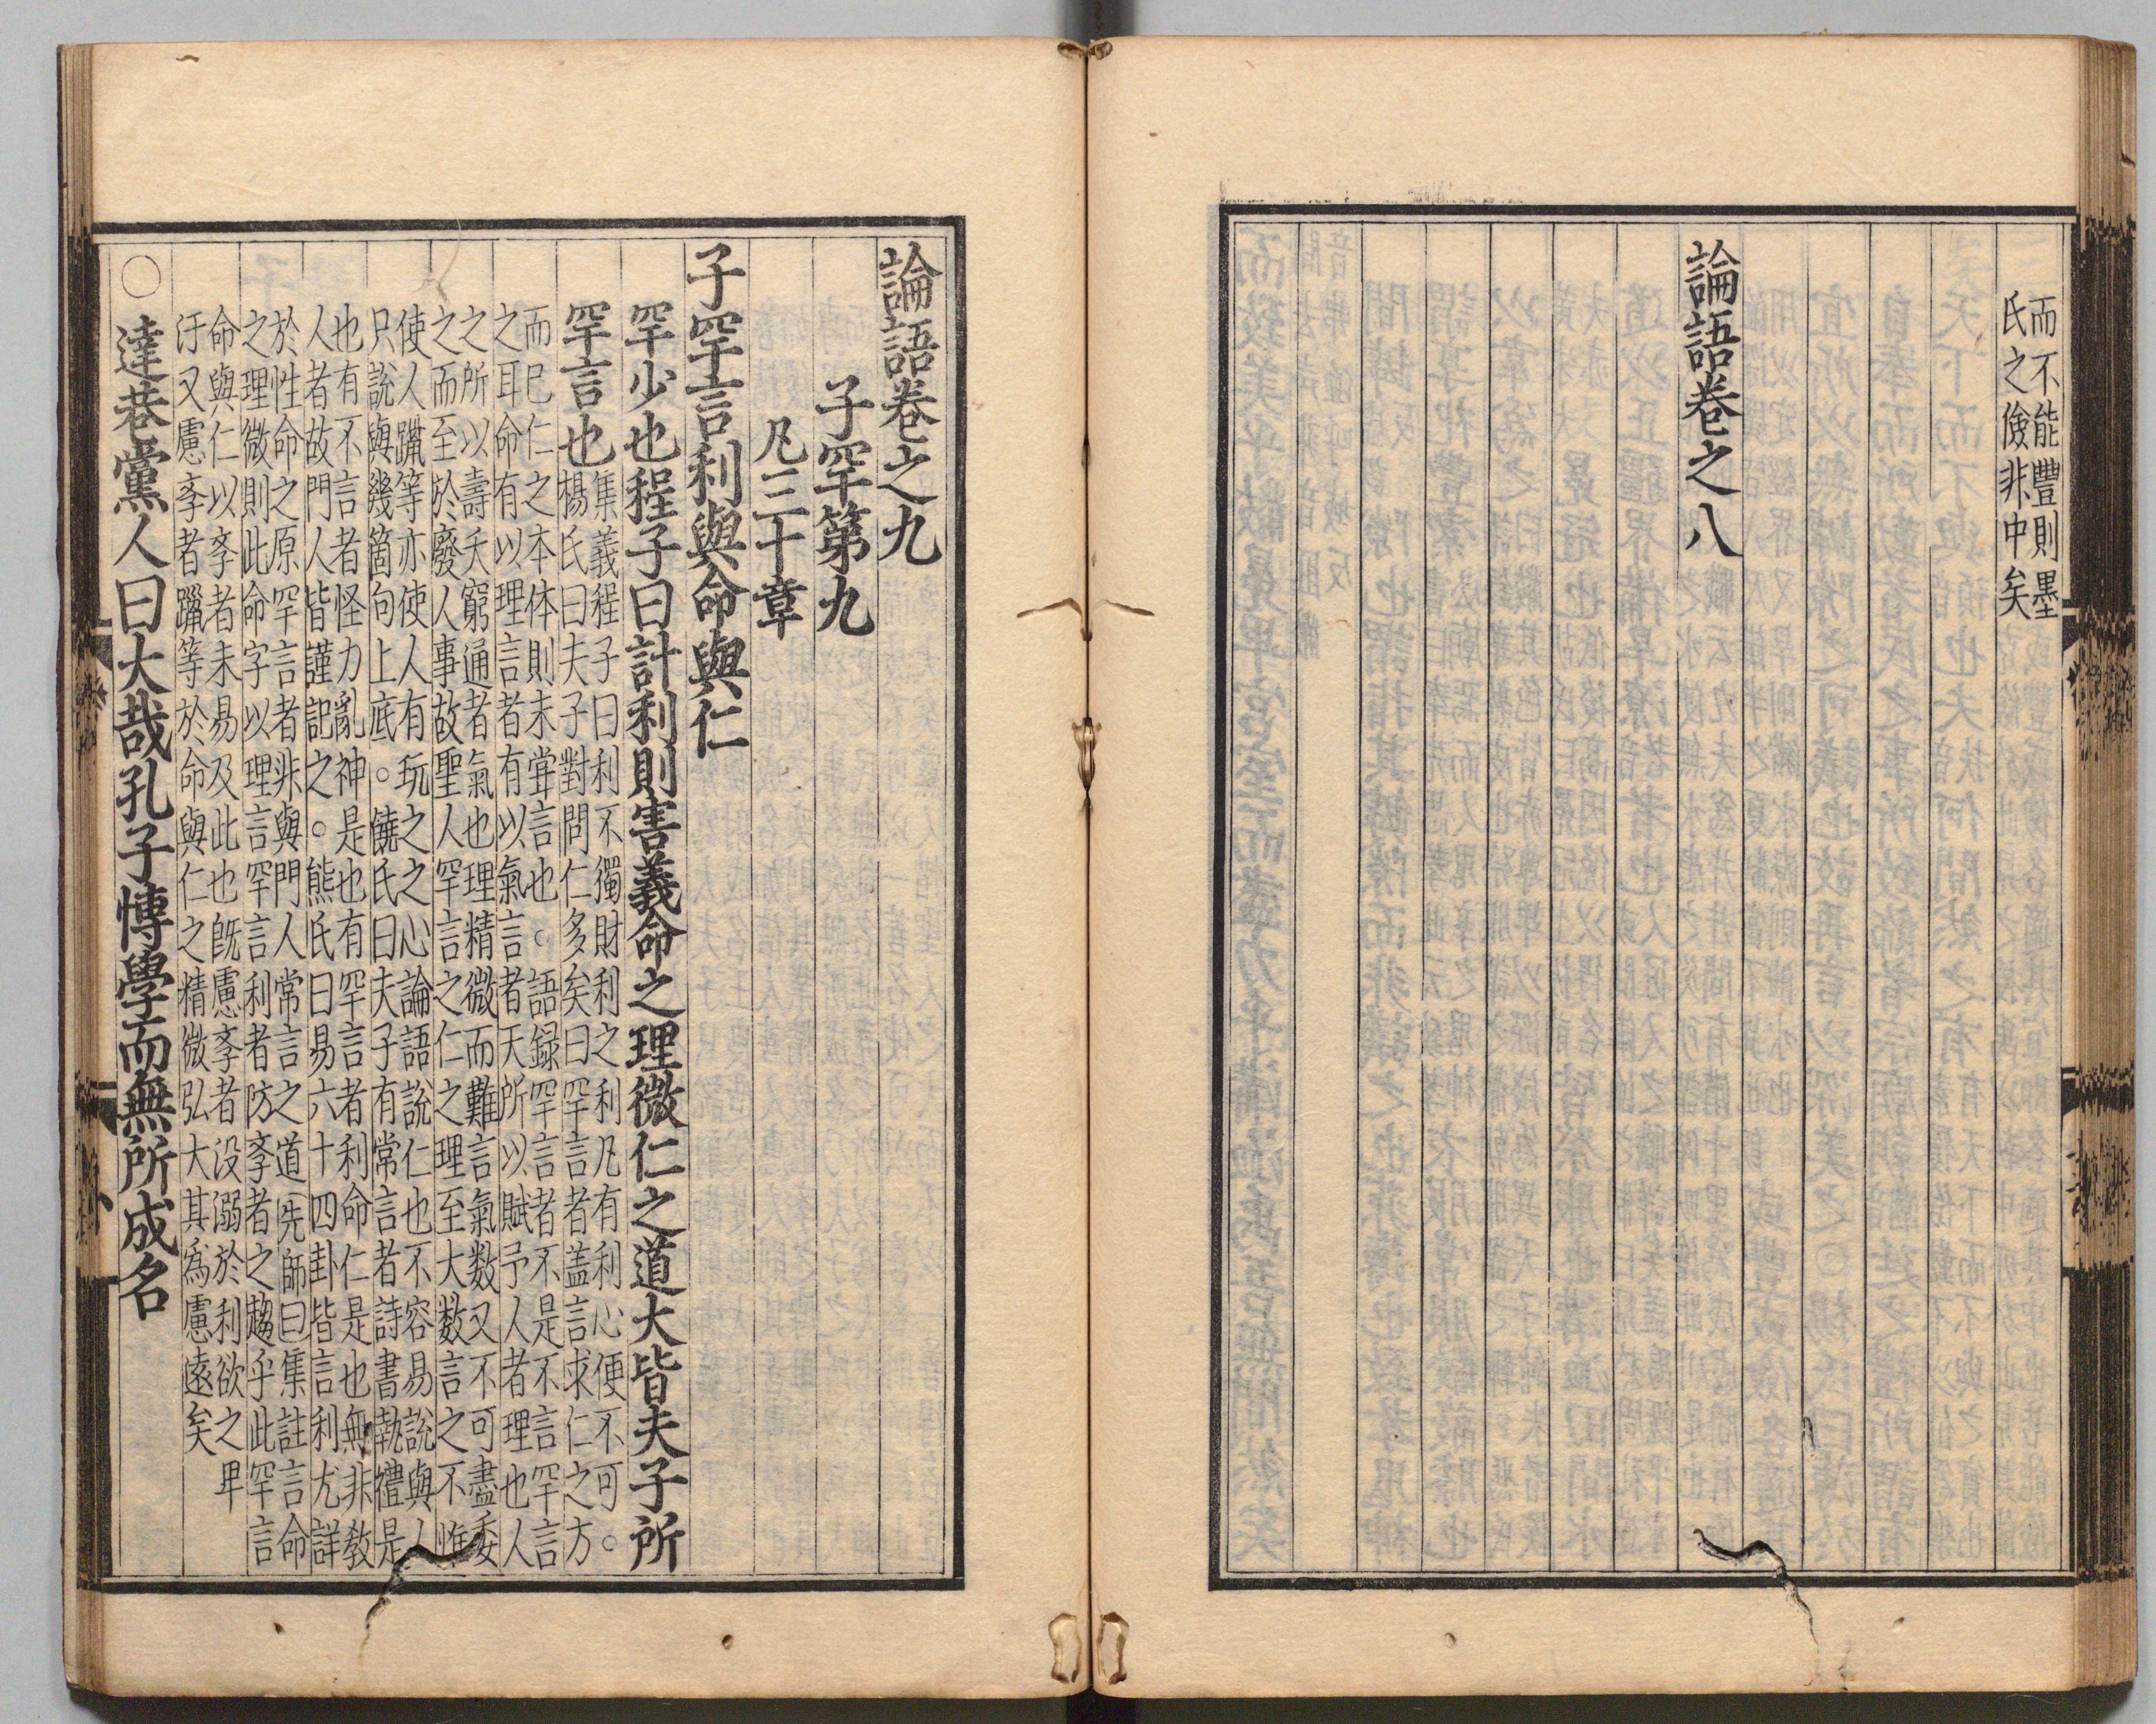 而不能豐則墨
氏之儉非中矣
論語卷之八
論語卷之九
子罕第九
凡三十章
子罕言利與命與仁
罕少也程子曰計利則害義命之理微仁之道大皆夫子所
罕言也
集義程子曰利不獨財利之利凡有利心便不可。
楊氏曰夫子對問仁多矣曰罕言者盖言求仁之方
而已仁之本体則未甞言也。語録罕言者不是不言罕言
之耳命有以理言者有以氣言者天所以賦予人者理也人
之所以壽夭窮通者氣也理精微而難言氣数又不可盡委
之而至於廢人事故聖人罕言之仁之理至大数言之不惟
使人躐等亦使人有玩之之心論語說仁也不容易說與人
只說與幾箇向上底。饒氏曰夫子有常言者詩書執禮是
也有不言者怪力亂神是也有罕言者利命仁是也無非教
人者故門人皆謹記之。熊氏曰易六十四卦皆言利尤詳
於性命之原罕言者非與門人常言之道先師曰集註言命
之理微則此命字以理言罕言利者防斈者之趨乎此罕言
命與仁以斈者未易及此也旣慮斈者没溺於利欲之卑
汙又慮斈者躐等於命與仁之精微弘大其為慮遠矣
○達巷黨人曰大哉孔子愽學而無所成名